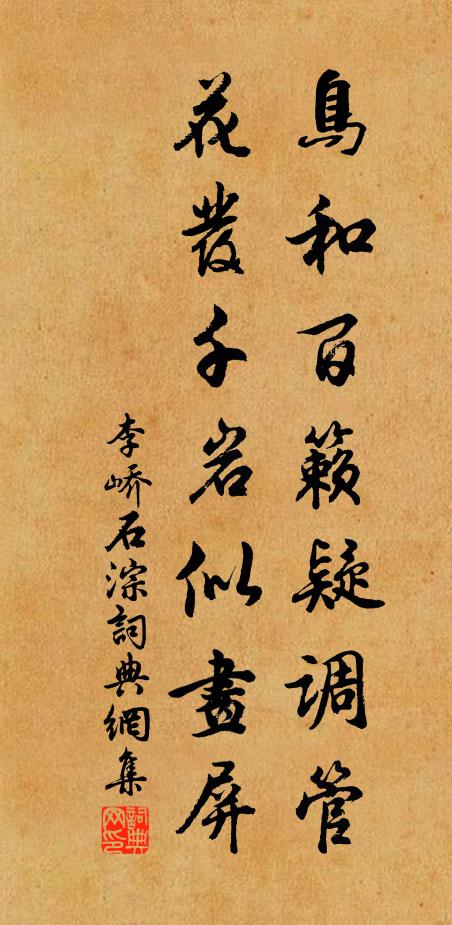 鳥和百籟疑调管
花發千岩似畫屏
李嶠石淙詞典網集
詞典网印